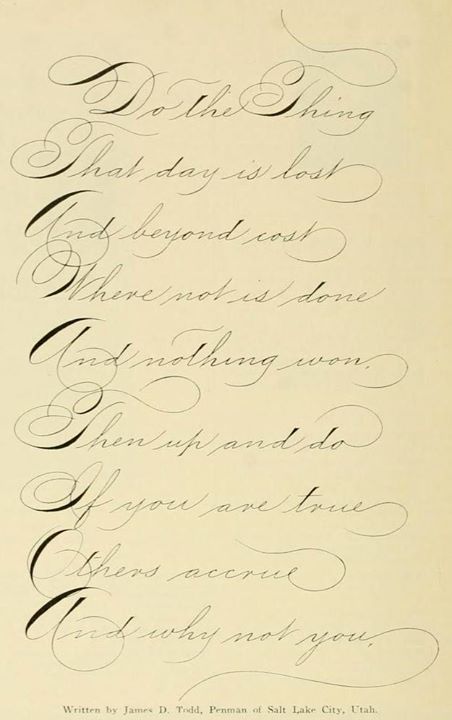 Do the Thing
That day is lost
And beyond cost
Where not is done
And nothing won.
Then up and do
If you are true
Others accrue
And why not you.
Written by James D. Todd, Penman of Salt Lake City, Utah.